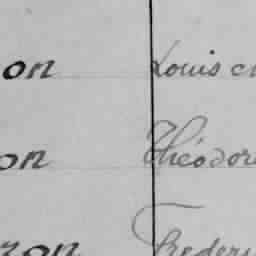 on Louis
on Théodore
ron Frederi